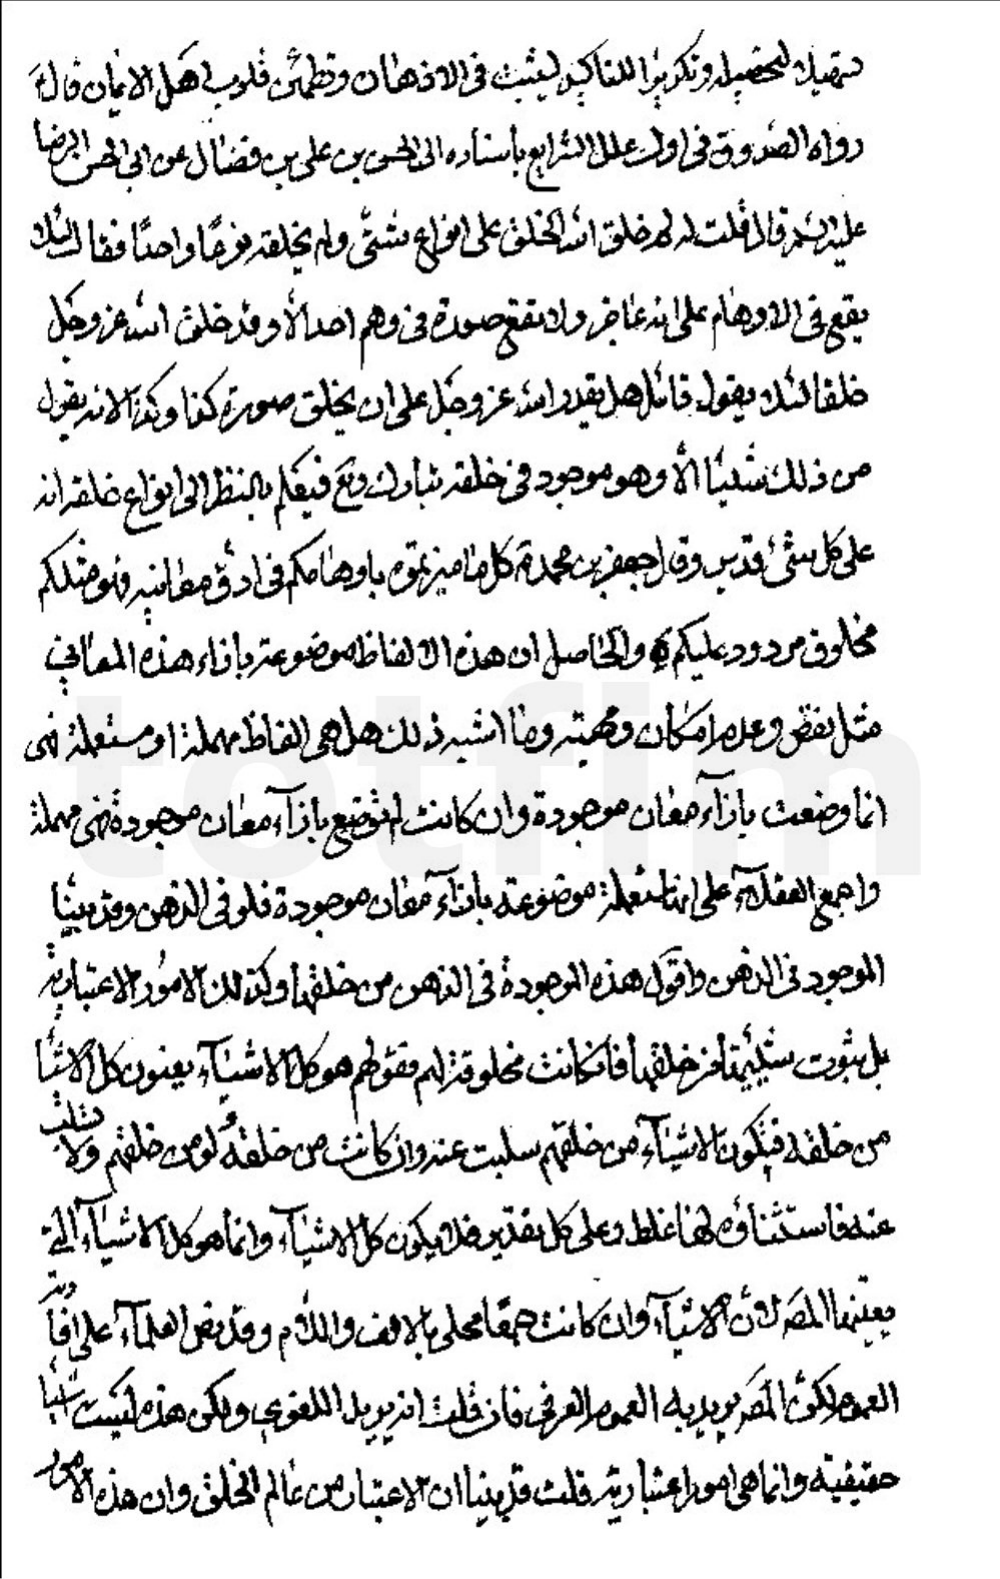 تسهيلا لتحصيله وتكريرا للتاكيد ليثبت فى الاذهان وتطمئن قلوب اهل الايمان قال
رواه الصدوق فى اول علل الشرايع باسناده الى الحسن بن على بن فضال عن ابى الحسن الرضا
عليه السلام قال قلت له لم خلق الله الخلق على انواع شتى ولم يخلقه نوعًا واحدًا فقال لئلا
يقع فى الاوهام على انه عاجز ولا تقع صورة فى وهم احد الا وقد خلق الله عز وجل
خلقا لئلا يقول قائل هل يقدر الله عز وجل على ان يخلق صورة كذا وكذا لانه لا يقول
من ذلك شيئا الا وهو موجود فى خلقه تبارك وتع فيعلم بالنظر الى انواع خلقه انه
على كل شئ قدير وقال جعفر بن محمد ع كل ما ميزتموه باوهامكم فى ادق معانيه فهو مثلكم
مخلوق مردود عليكم والحاصل ان هذه الالفاظ موضوعة بازاء هذه المعانى
مثل نقض وعدم امكان ومهية وما اشبه ذلك هل هى الفاظ مهملة او مستعملة فهى
انما وضعت بازآء معان موجودة وان كانت لم توضع بازآء معان موجودة فهى مهملة
واجمع العقلآء على انها مستعملة موضوعة بازآء معان موجودة فلو فى الذهن وقد بينا
الموجود فى الذهن واقول هذه الموجودة فى الذهن من خلقها وكذلك الامور الاعتبارية
بل ثبوت شيئيتها من خلقها فان كانت مخلوقة لهم فقولهم هو كل الاشيآء يعنون كل الاشيا
من خلقه فتكون الاشيآء من خلقهم سلبت عنه وان كانت من خلقه لو من خلقهم ولا تسلب
عنه فاستثناؤه لها غلط وعلى كل تقدير فلا يكون كل الاشيآء وانما هو كل الاشيآء التى
يعينها المص لان الاشيآء وان كانت جمعًا محلى بالالف واللام وقد نص العلمآء على افادته
العموم لكن المص يريد به العموم العرفى فان قلت انه يريد اللغوى ولكن هذه ليست شيئا
حقيقية وانما هى امور اعتبارية قلت قد بينا ان الاعتبار من عالم الخلق وان هذه الامور